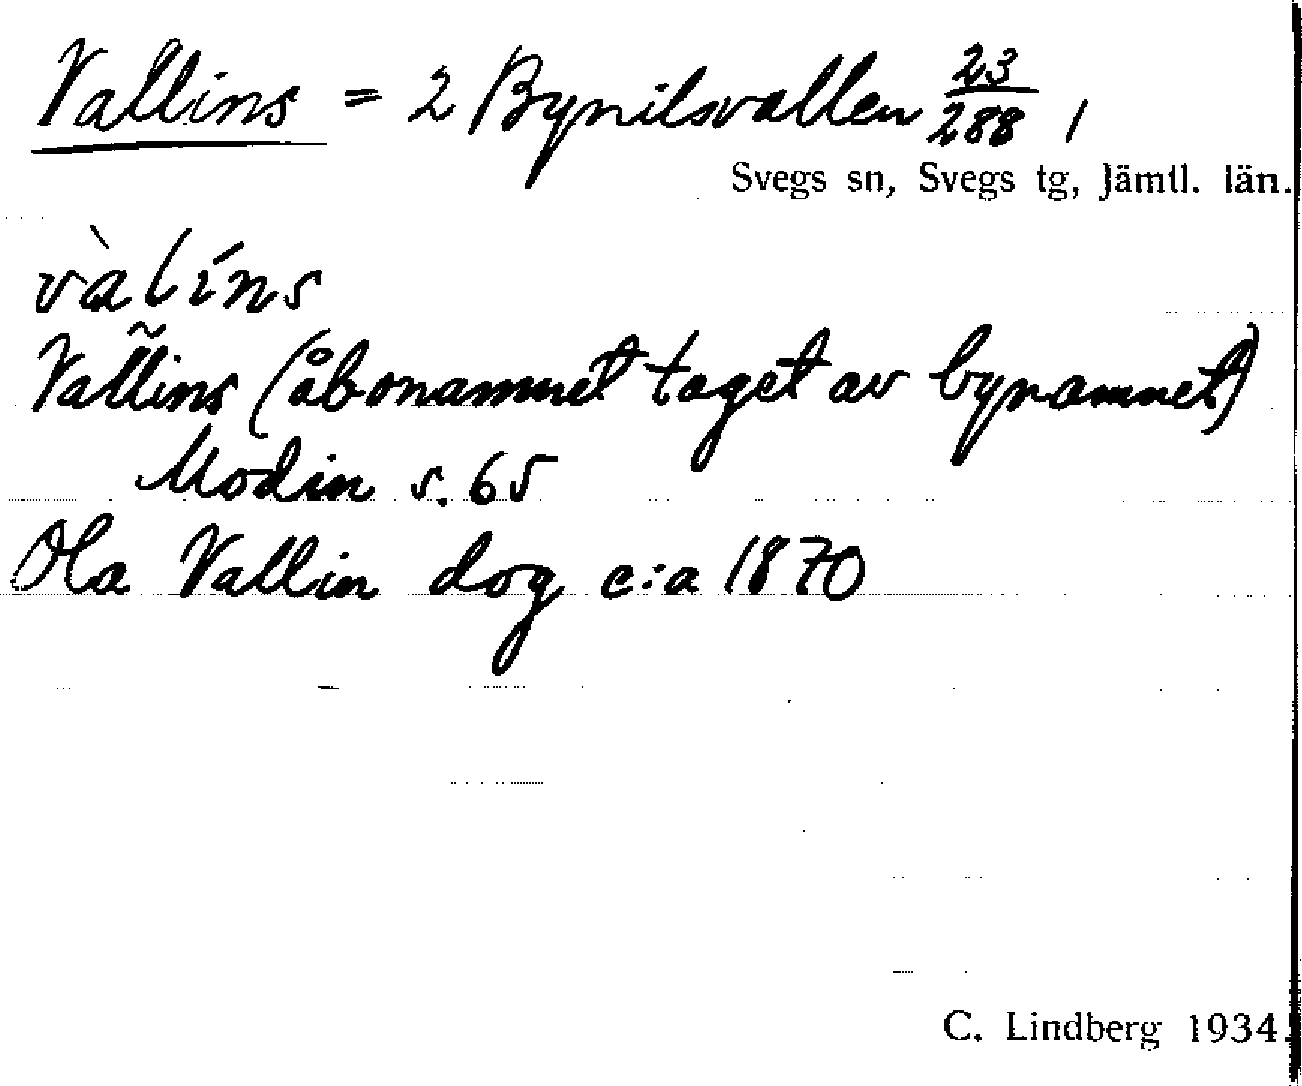 Vallins = 2 Bynilsvallen 23/288 /
Svegs sn, Svegs tg, Jämtl. län.
vàlíns
Vallins (åbonamnet taget av bynamnet)
Modin s. 65
Ola Vallin dog c:a 1870
C. Lindberg 1934.